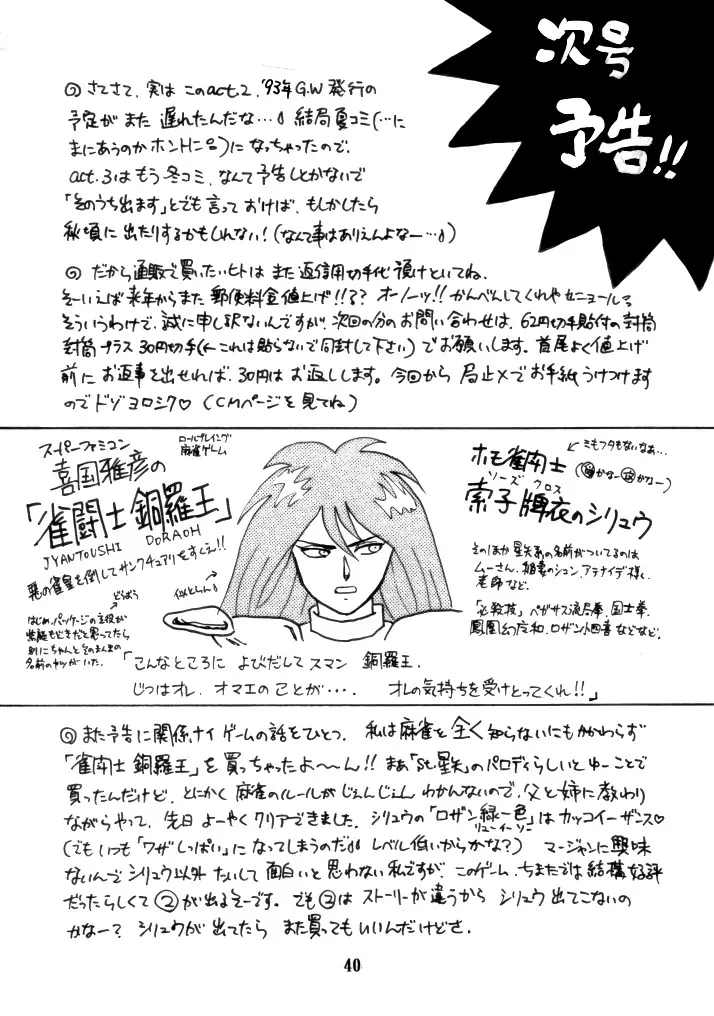 次号
予告!!
◎さてさて、実は このact.2、'93年G.W発行の
予定がまた 遅れたんだな…♪ 結局夏コミ(…に
まにあうのかホントに!?)になっちゃったので、
act.3はもう冬コミ、なんて予告しとかないで
「そのうち出ます」とでも言っておけば、もしかしたら
秋頃に出たりするかもしれない!(なんて事はありえんよなー…♪)
◎だから通販で買いたいヒトは また返信用切手代預けといてね。
そーいえば来年からまた 郵便料金値上げ!!?? オーノーッ!! かんべんしてくれやセニョール
そういうわけで、誠に申し訳ないんですが、次回の分のお問い合わせは、62円切手貼付の封筒
封筒プラス30円切手(←これは貼らないで同封して下さい)でお願いします。首尾よく値上げ
前にお返事を出せれば、30円はお返しします。今回から 局止メでお手紙うけつけます
のでドゾヨロシク♡ (CMページを見てね)
スーパーファミコン
ロールプレイング
麻雀ゲーム
喜国雅彦の
「雀闘士 銅羅王」
JYANTOUSHI DORAOH
悪の雀皇を倒してサンクチュアリをすくえ!!
どらおう
はじめ、パッケージの主役が
紫龍もどきだと思ってたら
別にちゃんとそのまんまの
名前のヤツがいた。
似とらん
ミもフタもないなぁ…
ホモ雀闘士
ソーズ クロス
索子牌衣のシリュウ
そのほか 星矢系の名前がついてるのは
ムーさん、稲妻のシュン、アテナイデ様、
老師など。
「必殺技」ペガサス流局拳、国士拳、
鳳凰幻応和、ロザント四喜などなど。
「こんなところに よびだしてスマン 銅羅王。
じつはオレ、オマエのことが‥‥。 オレの気持ちを受けとってくれ!!」
◎また予告に関係ナイ ゲームの話をひとつ。 私は麻雀を全く知らないにもかかわらず
「雀闘士 銅羅王」を買っちゃったよ〜ん!! まあ「St.星矢」のパロディらしいとゆーことで
買ったんだけど、とにかく麻雀のルールがじぇんじぇんわかんないので、父と姉に教わり
ながらやって、先日よーやくクリアできました。シリュウの「ロザン緑一色」はカッコイーザンス♡
リューイーソー
(でもいつも「ワザしっぱい」になってしまうのだ レベル低いからかな?) マージャンに興味
ないんでシリュウ以外たいして面白いと思わない私ですが、このゲーム、ちまたでは結構好評
だったらしくて②が出るそーです。でも②はストーリーが違うからシリュウ出てこないの
かなー? シリュウが出てたら また買ってもいいんだけどさ。
40